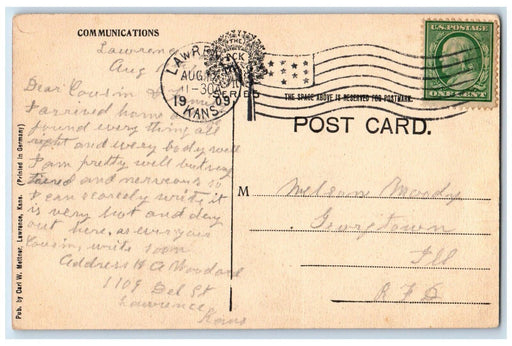 COMMUNICATIONS
Lawrence
Aug
Dear Cousin &
I arrived home
found every thing all
right and every body well
I am pretty well but very
tired and nervous so
I can scarcely write, it
is very hot and dry
out here, as ever your
Cousin, write soon
Address H A Woodard
1109 Del St
Lawrence
Kans
Pub. by Carl W. Mettner, Lawrence, Kans. (Printed in Germany)
LAWRENCE
AUG
11-30
1909
KANS.
THE SPACE ABOVE IS RESERVED FOR POSTMARK.
POST CARD.
U.S. POSTAGE
ONE CENT
M Nelson Moody
Georgetown
Ill
R F D